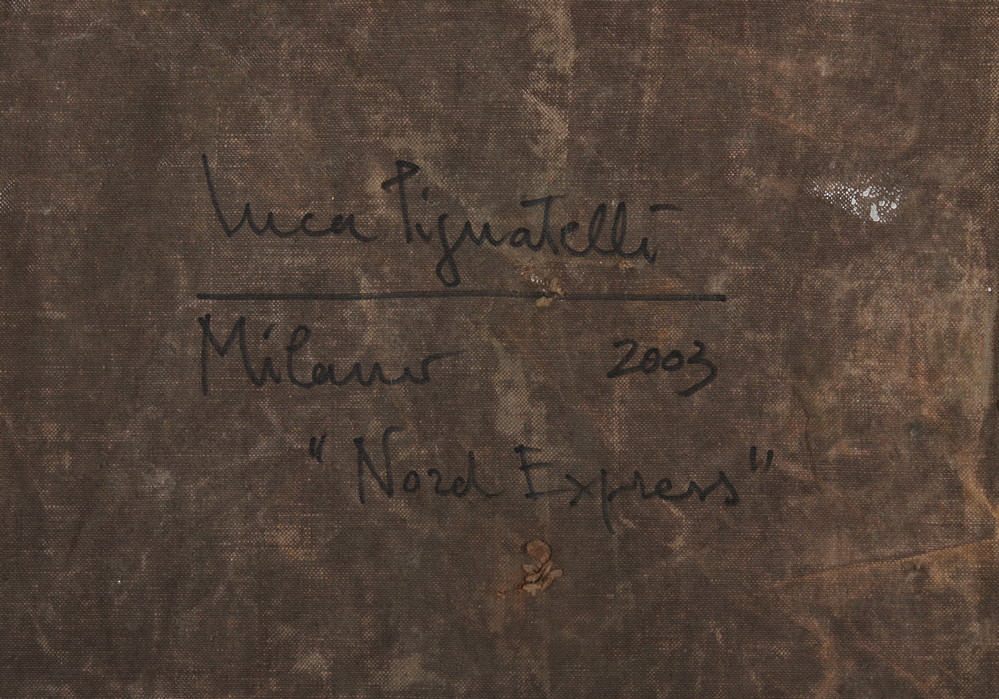 Luca Pignatelli
Milano 2003
"Nord Express"